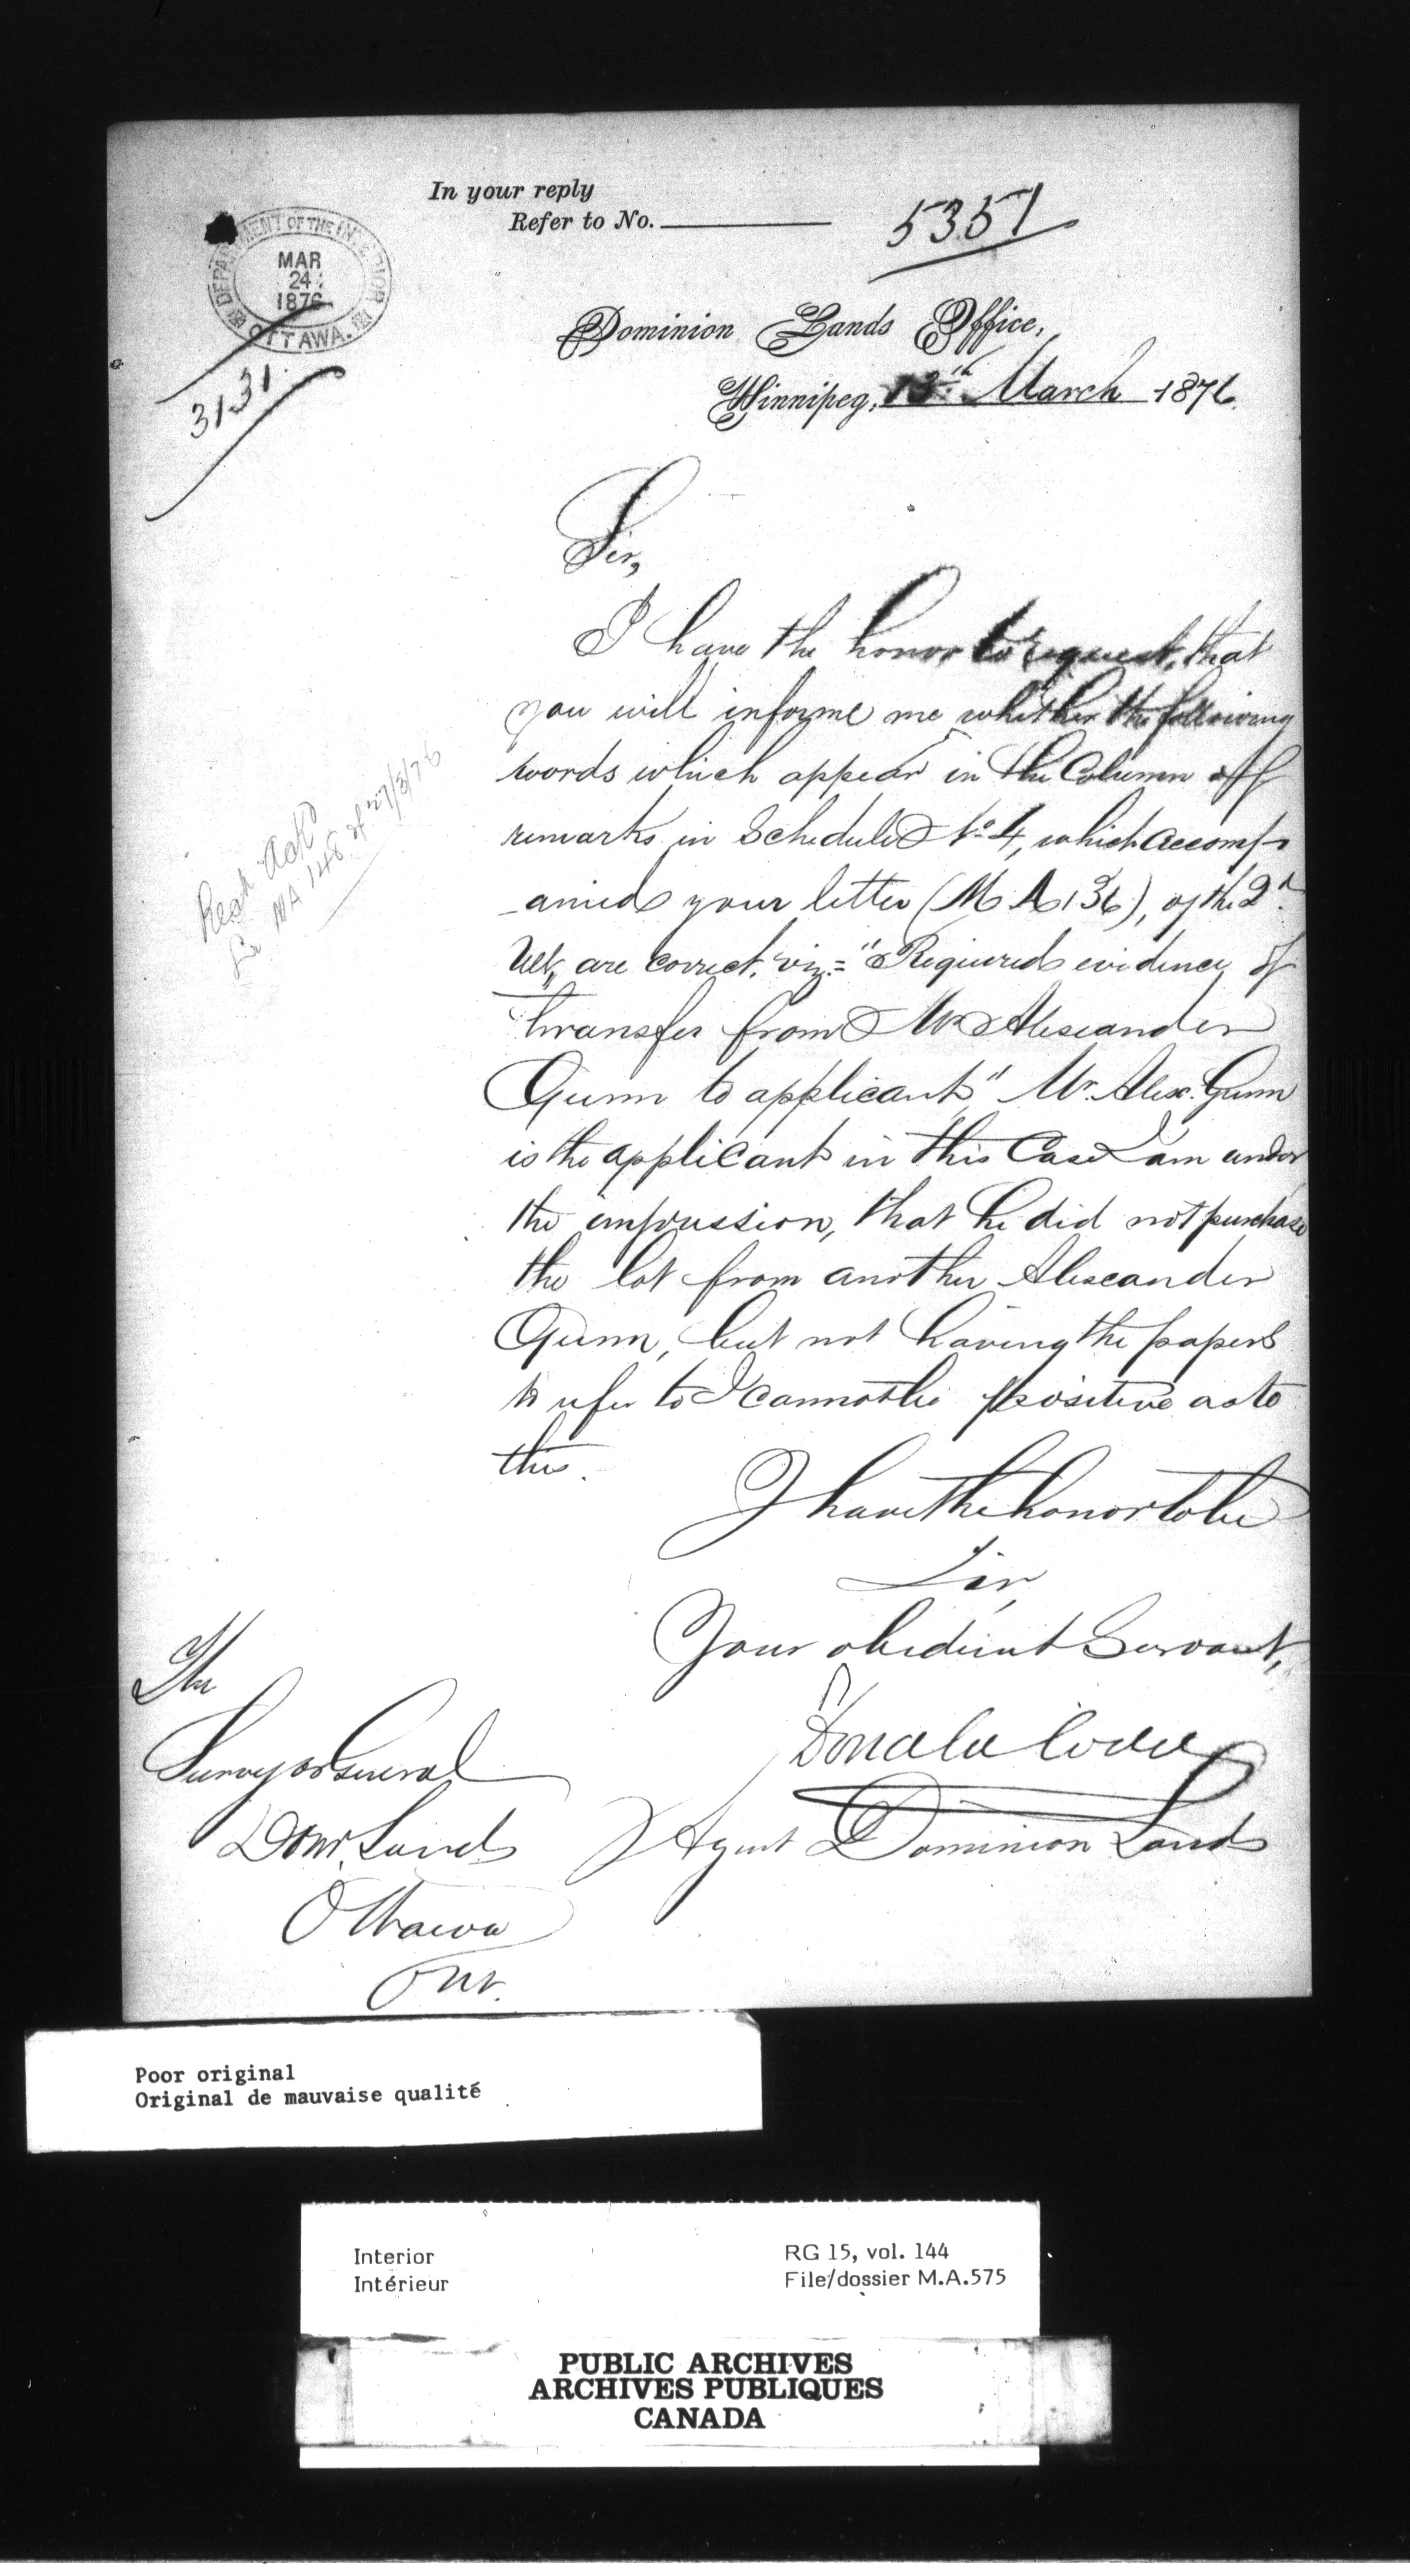 In your reply
Refer to No.
5351
DEPARTMENT OF THE INTERIOR
MAR
24
1876
OTTAWA.
3131.
Dominion Lands Office,
Winnipeg, 13th March 1876.
Sir,
I have the honor to request, that
you will informe me whether the following
words which appear in the Column off
remarks in Schedule No 4, which accomp-
-anied your letter (M A 136), of the 2d
Ult, are correct, viz = "Required evidence of
transfer from Mr Alexander
Gunn to applicant" Mr. Alex. Gunn
is the applicant in this Case I am under
the impression, that he did not purchase
the lot from another Alexander
Gunn, but not having the papers
to refer to I cannot be positive as to
this.
Ack'd
MA 148 of 27/3/76
I have the honor to be
Sir,
Your obedient Servant,
Donald Codd
Agent Dominion Lands
The
Surveyor General
Dom. Lands
Ottawa
Ont.
Poor original
Original de mauvaise qualité
Interior
Intérieur
RG 15, vol. 144
File/dossier M.A.575
PUBLIC ARCHIVES
ARCHIVES PUBLIQUES
CANADA